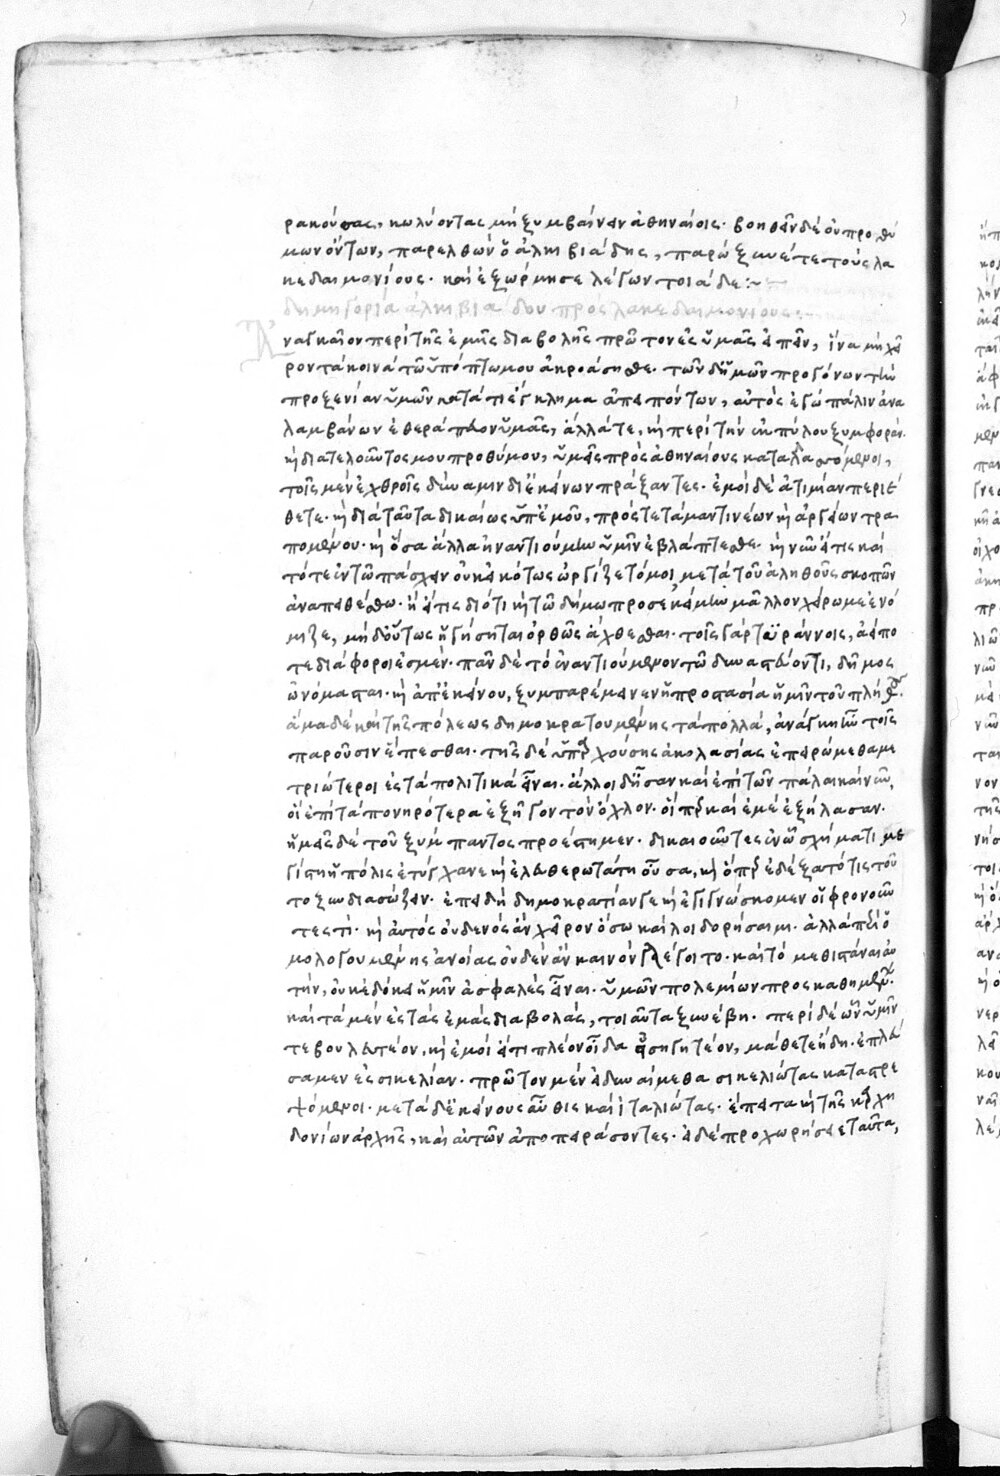 ρακούσας, κωλύοντας μὴ ξυμβαίνειν ἀθηναίοις· βοηθεῖν δὲ οὐ προθύ
μων ὄντων, παρελθὼν ὁ ἀλκιβιάδης, παρώξυνέ τε τοὺς λα
κεδαιμονίους· καὶ ἐξώρμησε λέγων τοιάδε:~
δημηγορία ἀλκιβιάδου πρὸς λακεδαιμονίους:
Ἀναγκαῖον περὶ τῆς ἐμῆς διαβολῆς πρῶτον ἐς ὑμᾶς εἰπεῖν, ἵνα μὴ χεῖ
ρον τὰ κοινὰ τῶ ὑπόπτω μου ἀκροάσησθε· τῶν δ' ἡμῶν προγόνων τὴν
προξενίαν ὑμῶν κατά τι ἔγκλημα ἀπειπόντων, αὐτὸς ἐγὼ πάλιν ἀνα
λαμβάνων ἐθεράπευον ὑμᾶς, ἄλλά τε, κὴ περὶ τὴν ἐκ πύλου ξυμφοράν·
κὴ διατελοῦντος μου προθύμου, ὑμεῖς πρὸς ἀθηναίους καταλασσόμενοι,
τοῖς μὲν ἐχθροῖς δύναμιν δι' ἐκείνων πράξαντες· ἐμοὶ δὲ ἀτιμίαν περιέ
θετε· κὴ διὰ ταῦτα δικαίως ὑπ' ἐμοῦ, πρός τε τὰ μαντινέων κὴ ἀργείων τρα
πομένου· κὴ ὅσα ἄλλα ἠναντιούμην ὑμῖν ἐβλάπτεσθε· κὴ νῦν εἴ τις καὶ
τότε ἐν τῶ πάσχειν οὐκ εἰκότως ὠργίζετό μοι, μετὰ τοῦ ἀληθοῦς σκοπῶν
ἀναπειθέσθω· ἢ εἴ τις διότι κὴ τῶ δήμω προσεκείμην μᾶλλον χείρω με ἐνό
μιζε, μὴ δ' οὕτως ἡγήσηται ὀρθῶς ἄχθεσθαι· τοῖς γὰρ τυράννοις, ἀεί πο
τε διάφοροί ἐσμεν· πᾶν δὲ τὸ ἐναντιούμενον τῶ δυναστεύοντι, δῆμος
ὠνόμασται· κὴ ἀπ' ἐκείνου, ξυμπαρέμεινεν ἡ προστασία ἡμῖν τοῦ πλήθους·
ἅμα δὲ καὶ τῆς πόλεως δημοκρατουμένης τὰ πολλὰ, ἀνάγκη ἦν τοῖς
παροῦσιν ἕπεσθαι· τῆς δὲ ὑπαρχούσης ἀκολασίας ἐπειρώμεθα με
τριώτεροι ἐς τὰ πολιτικὰ εἶναι· ἄλλοι δ' ἦσαν καὶ ἐπὶ τῶν πάλαι καὶ νῦν,
οἳ ἐπὶ τὰ πονηρότερα ἐξῆγον τὸν ὄχλον· οἵπερ καὶ ἐμὲ ἐξήλασαν·
ἡμεῖς δὲ τοῦ ξύμπαντος προέστημεν· δικαιοῦντες ἐν ὧ σχήματι με
γίστη ἡ πόλις ἐτύγχανε κὴ ἐλευθερωτάτη οὖσα, κὴ ὅπερ ἐδέξατό τις τοῦ
το ξυνδιασώζειν· ἐπεὶ δὴ δημοκρατίαν γε κὴ ἐγιγνώσκομεν οἱ φρονοῦν
τές τι· κὴ αὐτὸς οὐδενὸς ἂν χεῖρον ὅσω καὶ λοιδορήσαιμι· ἀλλὰ περὶ ὁ
μολογουμένης ἀνοίας οὐδὲν ἂν καινὸν λέγοιτο· καὶ τὸ μεθιστάναι αὐ
τὴν, οὐκ ἐδόκει ἡμῖν ἀσφαλὲς εἶναι· ὑμῶν πολεμίων προσκαθημένων·
καὶ τὰ μὲν ἐς τὰς ἐμὰς διαβολάς, τοιαῦτα ξυνέβη· περὶ δὲ ὧν ὑμῖν
τε βουλευτέον, κὴ ἐμοὶ εἴ τι πλέον οἶδα ἐσηγητέον, μάθετε ἤδη· ἐπλεύ
σαμεν ἐς σικελίαν· πρῶτον μὲν εἰ δυναίμεθα σικελιώτας καταστρε
ψόμενοι· μετὰ δ' ἐκείνους αὖθις καὶ ἰταλιώτας· ἔπειτα κὴ τῆς καρχη
δονίων ἀρχῆς, καὶ αὐτῶν ἀποπειράσοντες· εἰ δὲ προχωρήσειε ταῦτα,